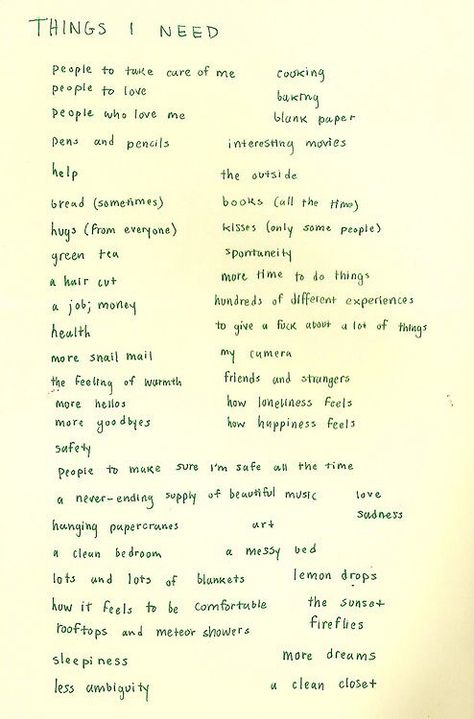 THINGS I NEED
people to take care of me
cooking
people to love
baking
people who love me
blank paper
pens and pencils
interesting movies
help
the outside
bread (sometimes)
books (all the time)
hugs (from everyone)
kisses (only some people)
green tea
spontaneity
a hair cut
more time to do things
a job; money
hundreds of different experiences
health
to give a fuck about a lot of things
more snail mail
my camera
the feeling of warmth
friends and strangers
more hellos
how loneliness feels
more goodbyes
how happiness feels
safety
people to make sure I'm safe all the time
a never-ending supply of beautiful music
love
sadness
hanging papercranes
art
a clean bedroom
a messy bed
lots and lots of blankets
lemon drops
how it feels to be comfortable
the sunset
rooftops and meteor showers
fireflies
sleepiness
more dreams
less ambiguity
a clean closet